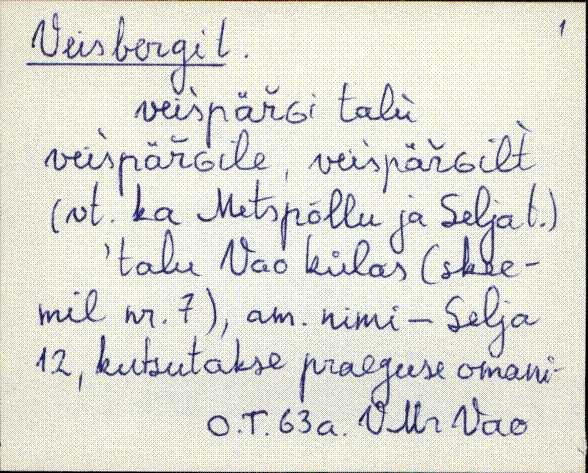 Veisbergi t. 1
veìspäřɢi talù
veìspäřɢile, veìspäřɢilt̀
(vt. ka Metspõllu ja Selja t.)
'talu Vao külas (skee-
mil nr. 7), am. nimi – Selja
12, kutsutakse praeguse omani-
O.T. 63a. VMr Vao